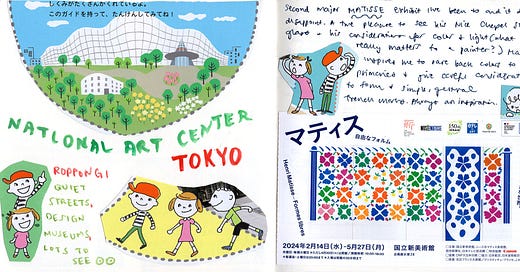 しくみがたくさんかくれているよ。
このガイドを持って、たんけんしてみてね!
NATIONAL ART CENTER
TOKYO
ROPPONGI
QUIET
STREETS,
DESIGN
MUSEUMS,
LOTS TO
SEE
Second major MATISSE exhibit I've been to and it d
disappoint. A true pleasure to see his Nice Chapel St
glass - his consideration for color & light (what
really matters to a painter?) Ma
inspires me to pare back colors to
primaries & give careful considerat
to form & simple, general
French micro. Always an inspiration.
マティス
自由なフォルム
Henri Matisse: Formes libres
2024年2月14日(水)-5月27日(月)
国立新美術館